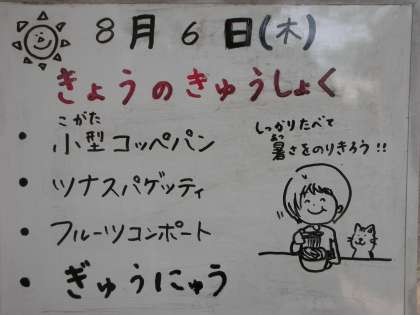 8月6日(木)
きょうのきゅうしょく
こがた
・小型コッペパン
・ツナスパゲッティ
・フルーツコンポート
・ぎゅうにゅう
しっかりたべて
あつ
暑さをのりきろう!!